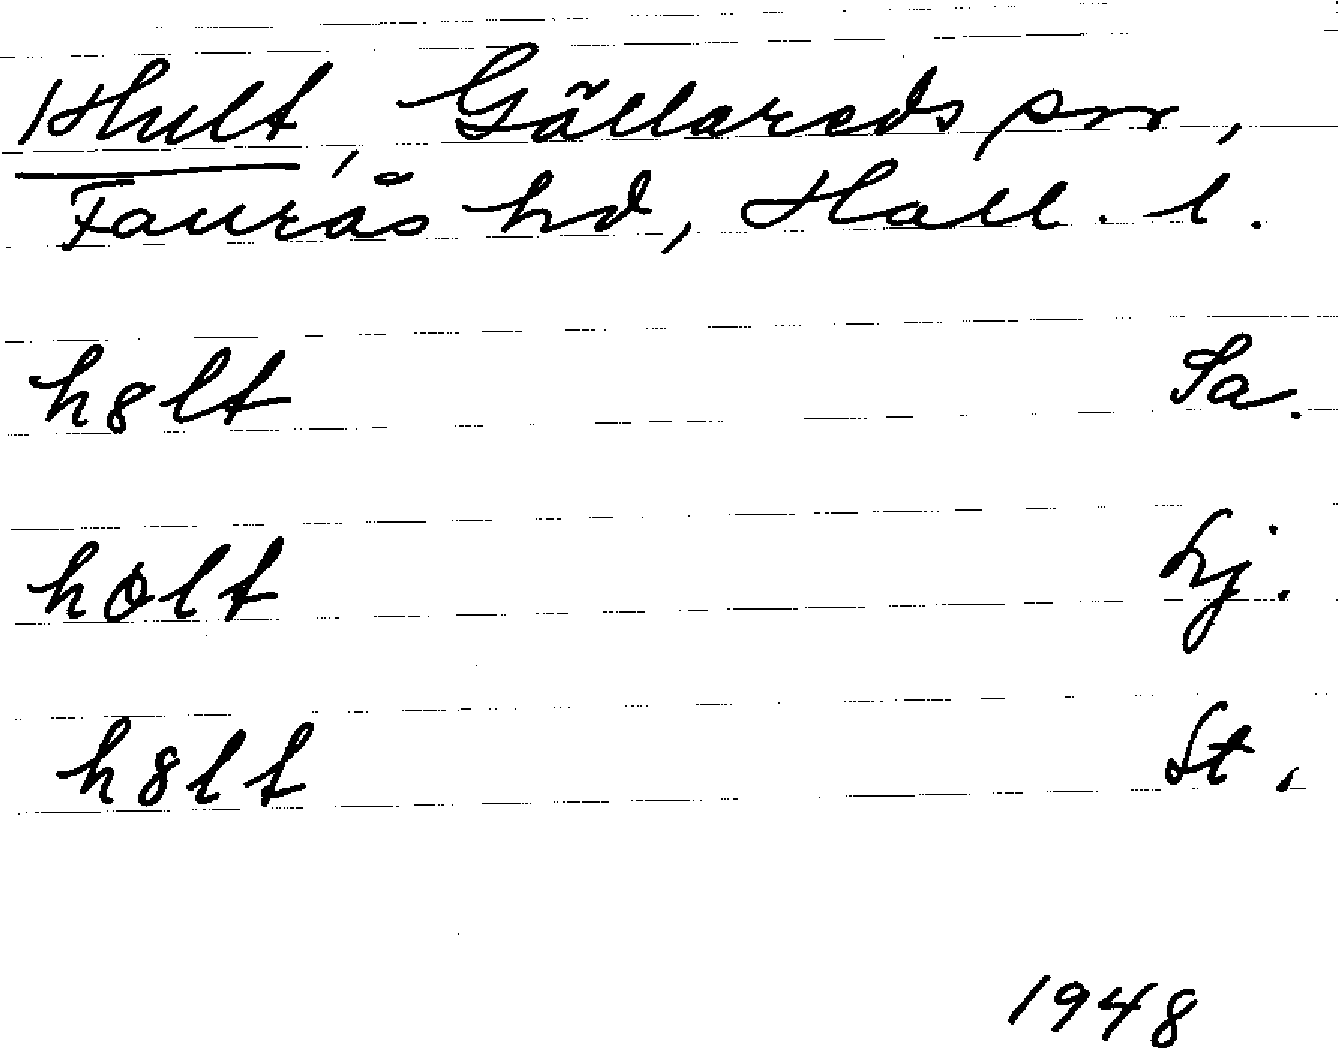 Hult, Gällareds snr,
Faurås hd, Hall. l.
h8lt Sa.
holt Lj.
h8lt St.
1948